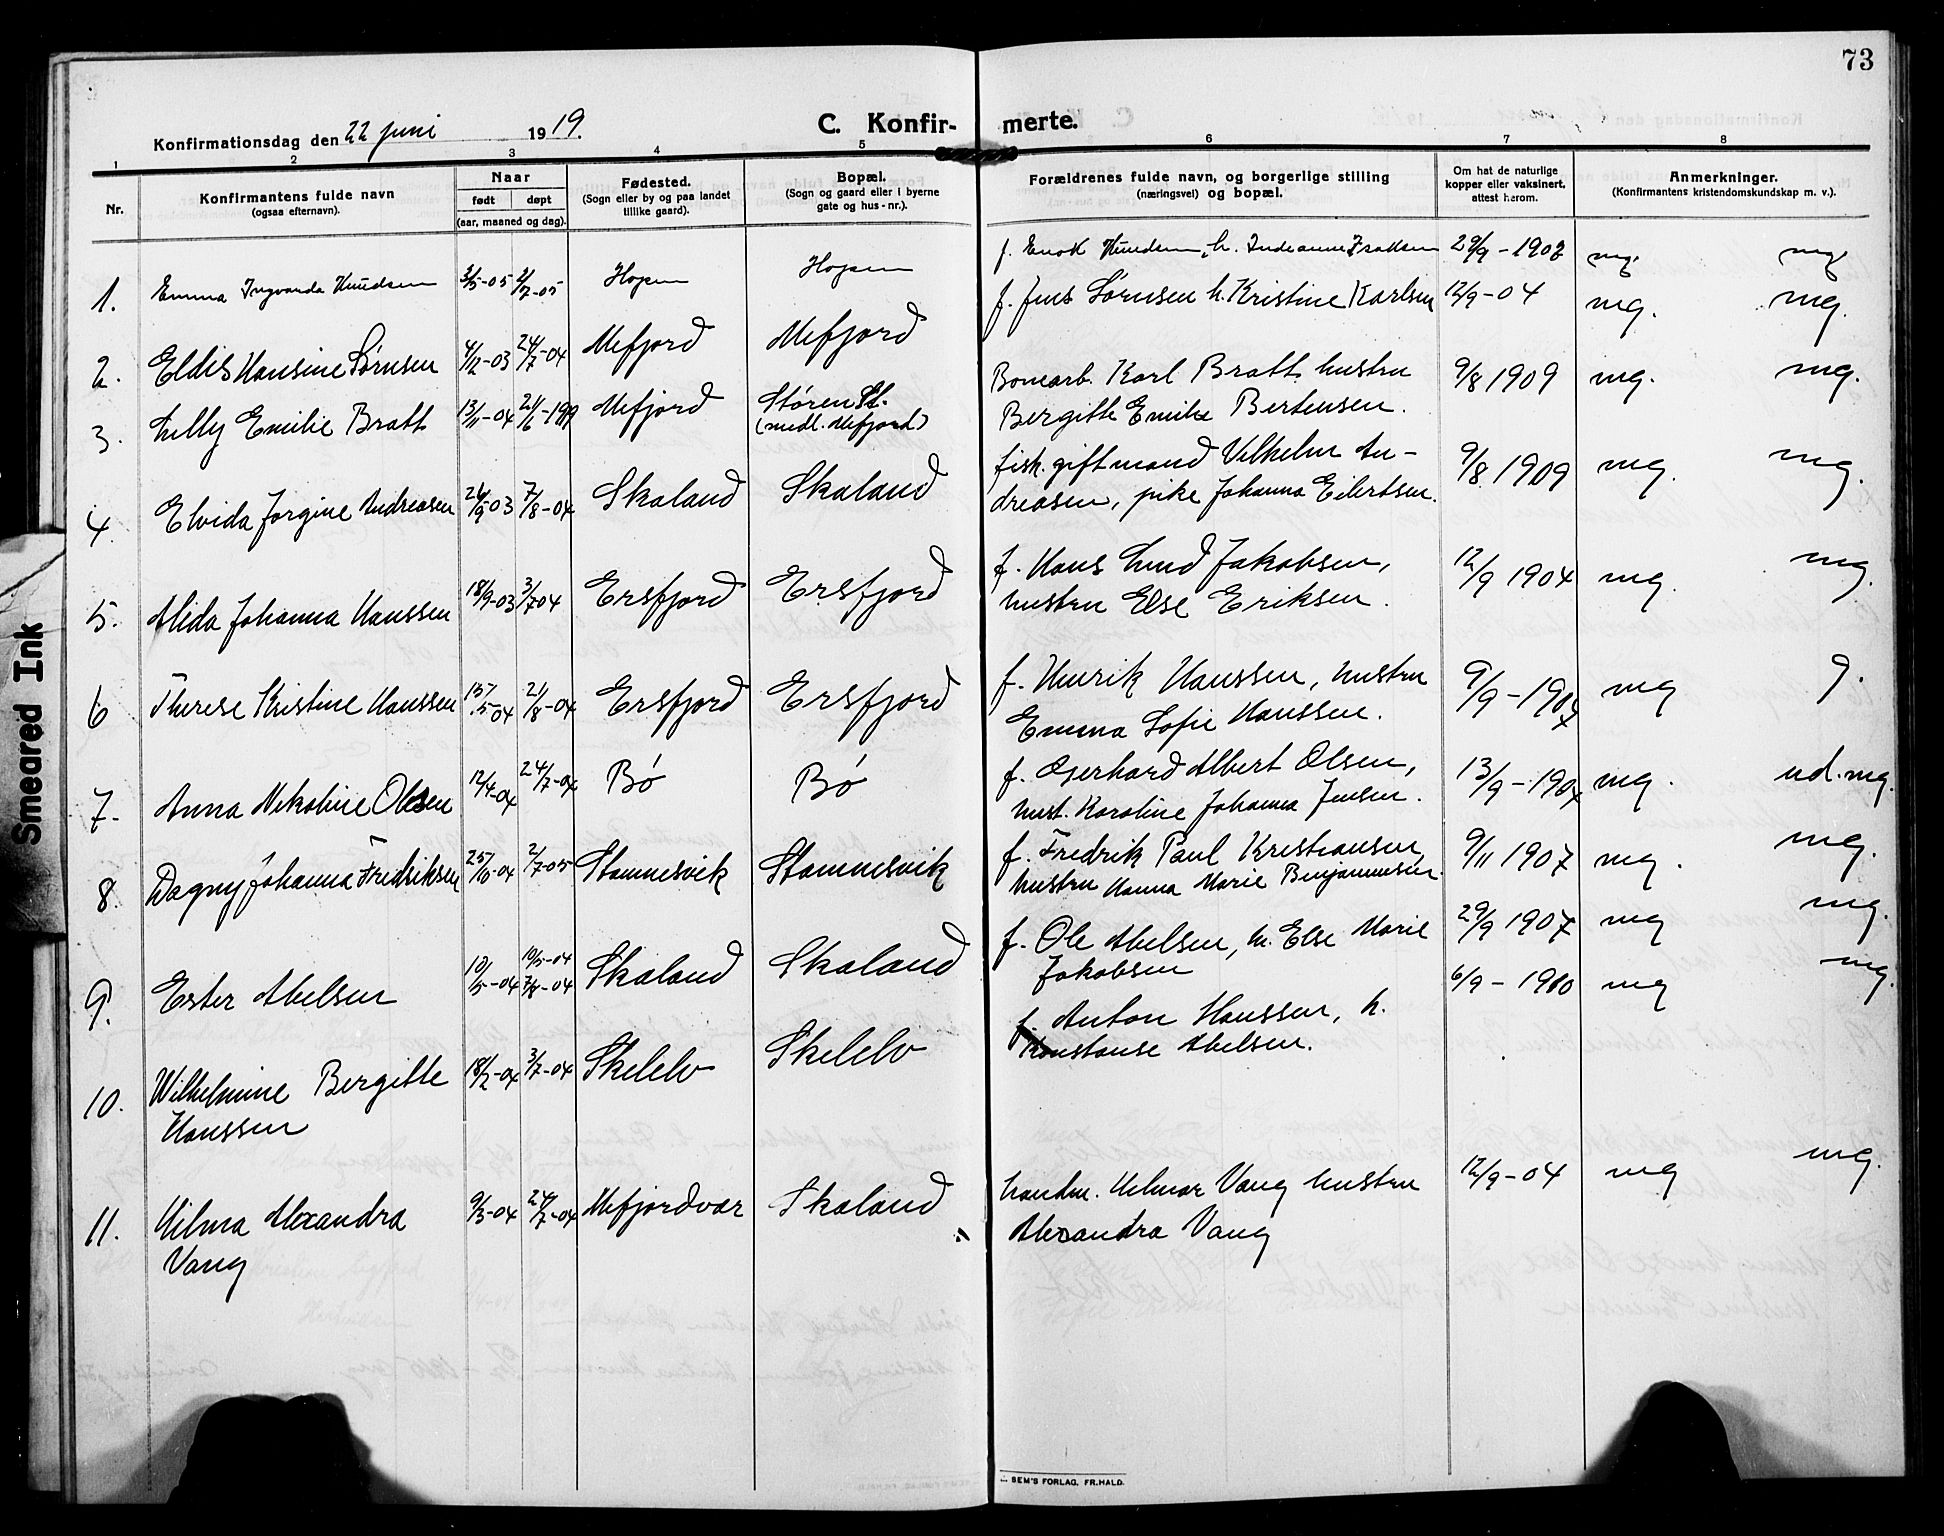 73
Konfirmationsdag den 22 juni 1919.
C. Konfir- merte.
1 2 3 4 5 6 7 8
Nr.
Konfirmantens fulde navn
(ogsaa efternavn).
Naar
født døpt
(aar, maaned og dag).
Fødested.
(Sogn eller by og paa landet
tillike gaard).
Bopæl.
(Sogn og gaard eller i byerne
gate og hus-nr.).
Forældrenes fulde navn, og borgerlige stilling
(næringsvei) og bopæl.
Om hat de naturlige
kopper eller vaksinert,
attest herom.
Anmerkninger.
(Konfirmantens kristendomskundskap m. v.).
1. Emma Ingvarda Knudsen 3/5-05 2/7-05 Hopen Hopen
f. Enok Knudsen, h. Indianne Isaksen 29/9-1908 mg. mg.
2. Eldis Hansine Sørnsen 4/12-03 24/7-04 Mefjord Mefjord
f. Jens Sørnsen h. Kristine Karlsen 12/9-04 mg. mg.
3. Lilly Emilie Bratt 13/11-04 Mefjord Støren St.
(medl. Mefjord)
Bonearb. Karl Bratt hustru
Bergitte Emilie Bertensen. 9/8 1909 mg. mg.
4. Elvida Jorgine Andreasen 26/9-03 7/8-04 Skaland Skaland
fisk. gift mand Vilhelm An-
dreasen, pike Johanna Eilertsen. 9/8 1909 mg. mg.
5. Alida Johanna Hanssen 18/9-03 3/7 04 Ersfjord Ersfjord
f. Hans Lind Jakobsen,
hustru Else Eriksen. 12/9 1904 mg. mg.
6 Therese Kristine Hanssen 15/5-04 21/8-04 Ersfjord Ersfjord
f. Henrik Hanssen, hustru
Emma Sofie Hanssen. 9/9-1907 mg g.
7. Anna Nikoline Olesen 12/4-04 24/7-04 Bø Bø
f. Gerhard Albert Olsen,
hust. Karoline Johanna Jensen. 13/9-1904 mg. ud. mg.
8. Dagny Johanna Fredriksen 25/10-04 2/7-05 Stamnesvik Stamnesvik
f. Fredrik Paul Kristiansen
hustru Hanna Marie Benjaminsen. 9/11 1907 mg. mg.
9. Ester Abelsen 10/5-04 10/5-04
7/8-04 Skaland Skaland
f. Ole Abelsen, h. Else Marie
Jakobsen 29/9 1907 mg mg.
10. Wilhelmine Bergitte
Hanssen 18/2-04 3/7-04 Skelelv Skelelv
f. Anton Hanssen, h.
Konstanse Abelsen. 6/9-1910 mg mg.
11. Hilma Alexandra
Vang 9/3-04 24/7-04 Mefjordvær Skaland
handm. Helmar Vang hustru
Alexandra Vang 12/9-04 mg mg.
SEM'S FORLAG, FR.HALD.
Smeared Ink